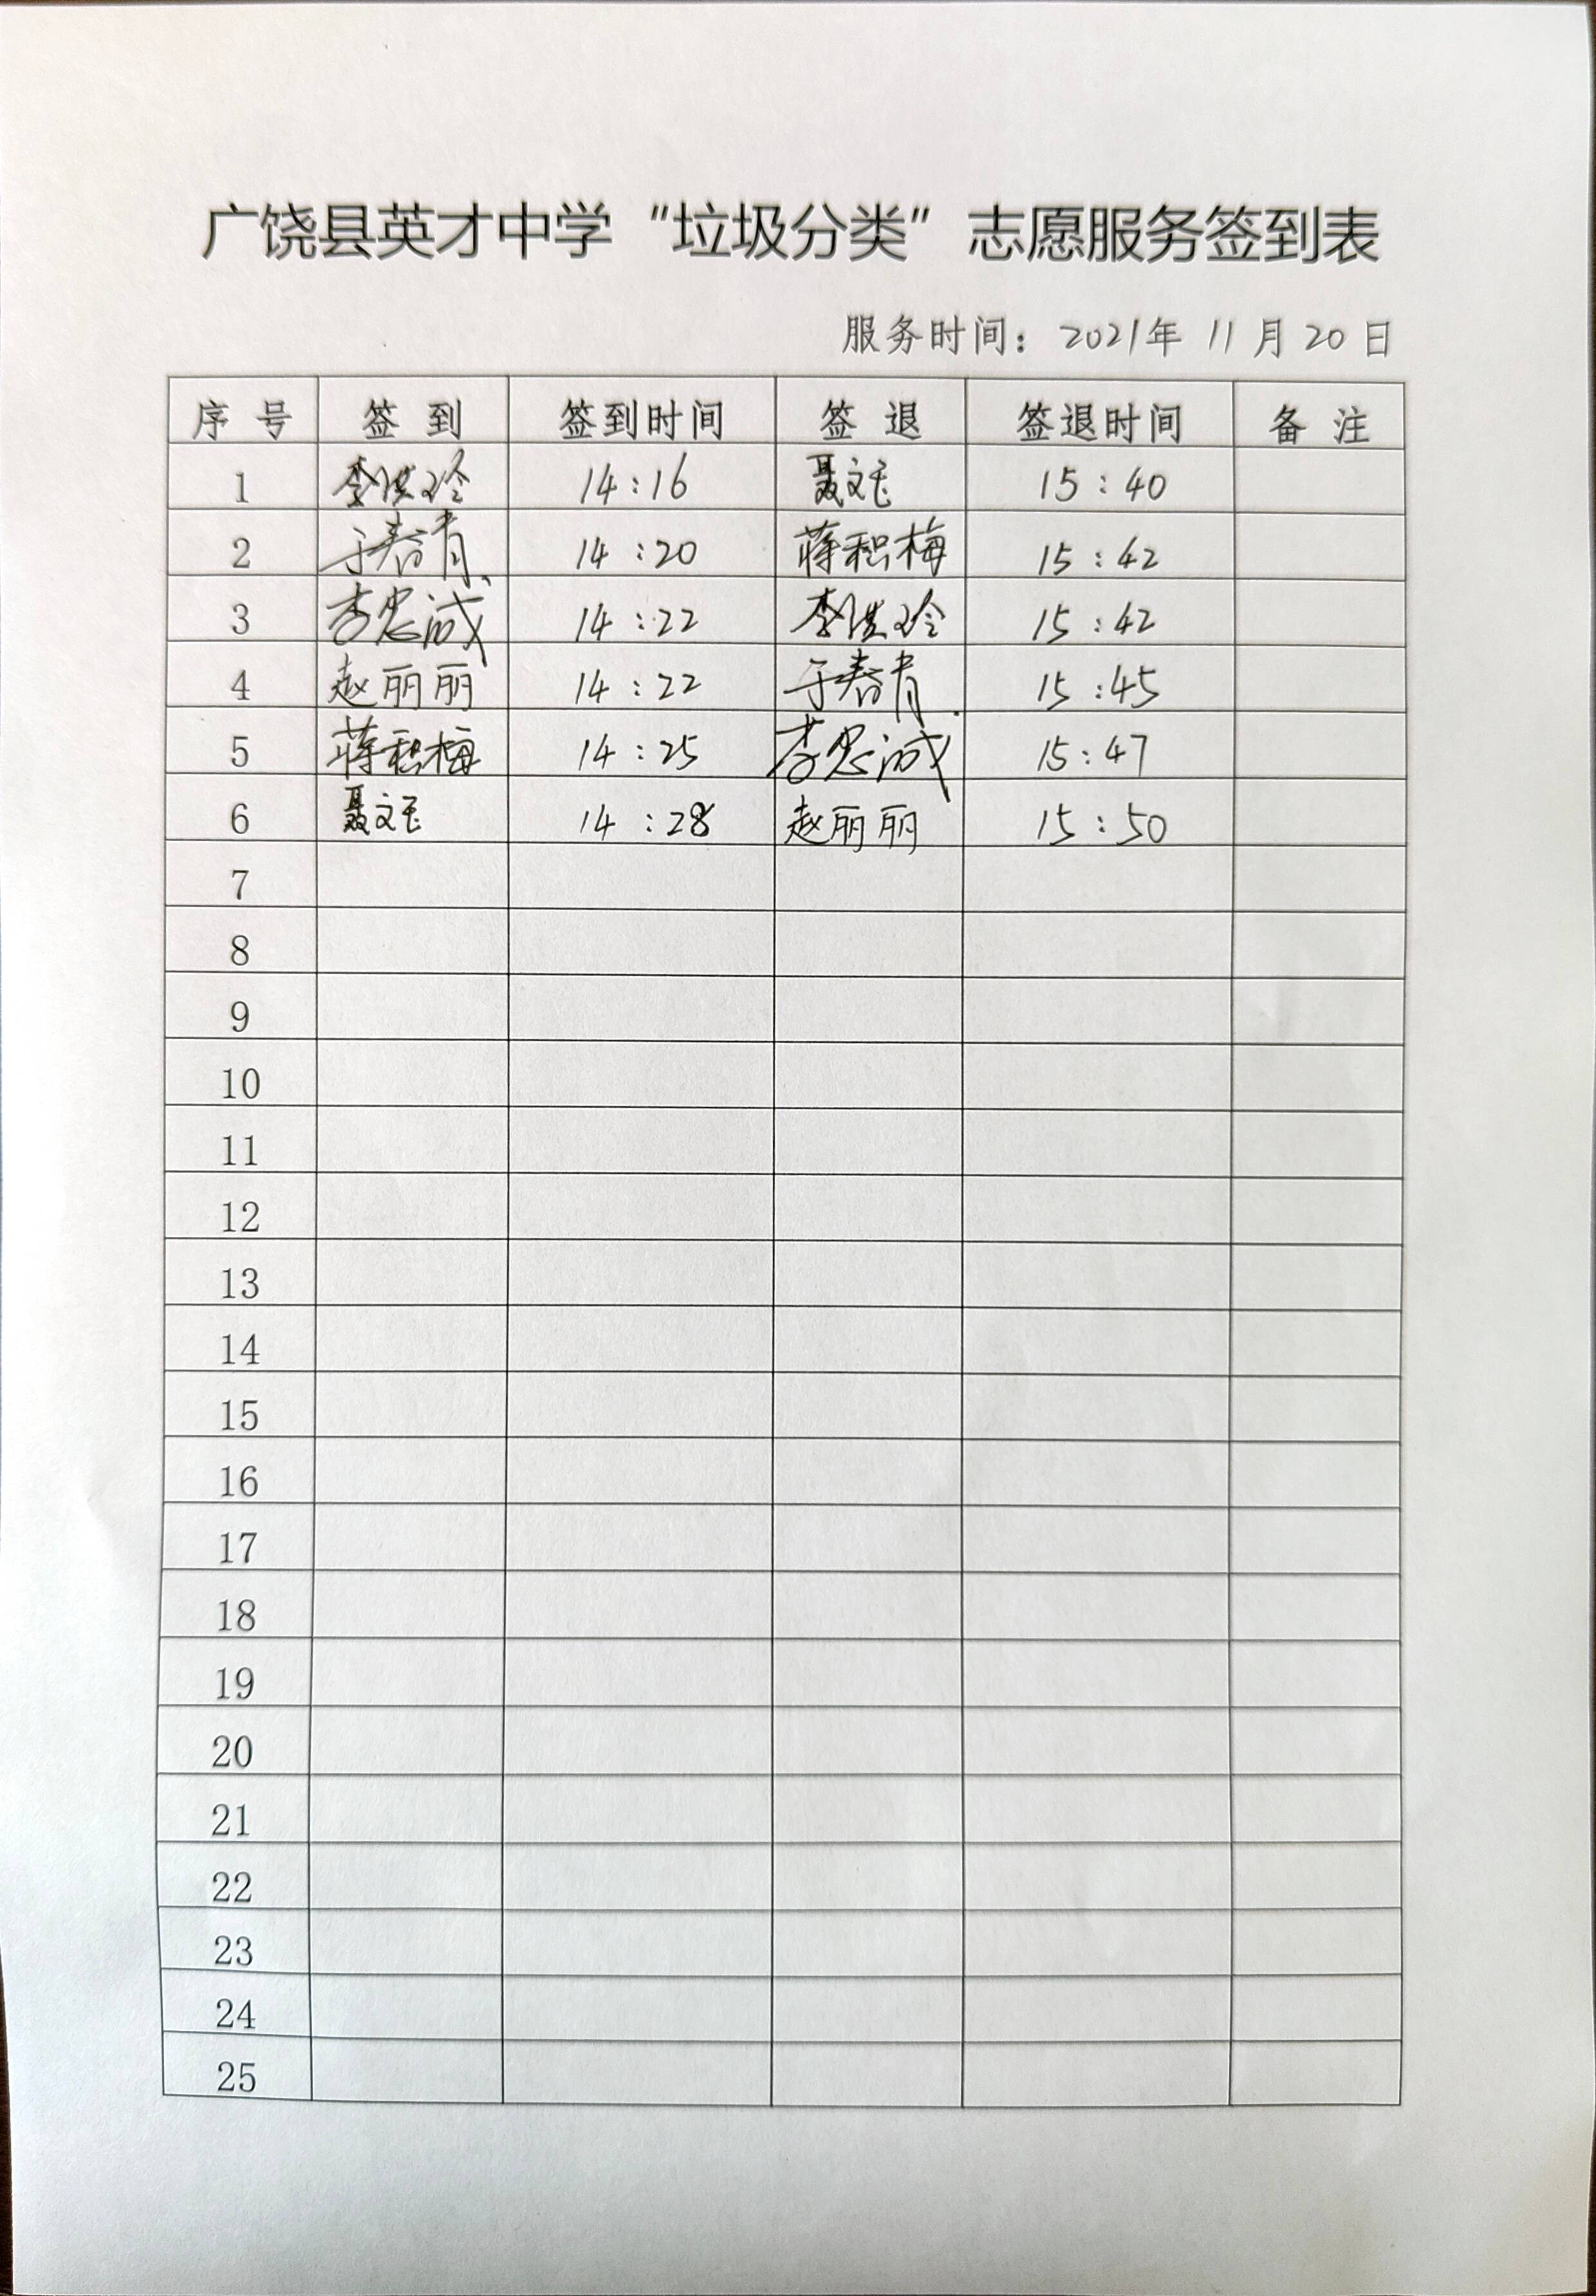 广饶县英才中学“垃圾分类”志愿服务签到表
服务时间：2021年 11 月 20 日
序 号 签 到 签到时间 签 退 签退时间 备 注
1 李洪玲 14:16 聂文玉 15:40
2 于春青 14:20 蒋积梅 15:42
3 李忠诚 14:22 李洪玲 15:42
4 赵丽丽 14:22 于春青 15:45
5 蒋积梅 14:25 李忠诚 15:47
6 聂文玉 14:28 赵丽丽 15:50
7
8
9
10
11
12
13
14
15
16
17
18
19
20
21
22
23
24
25